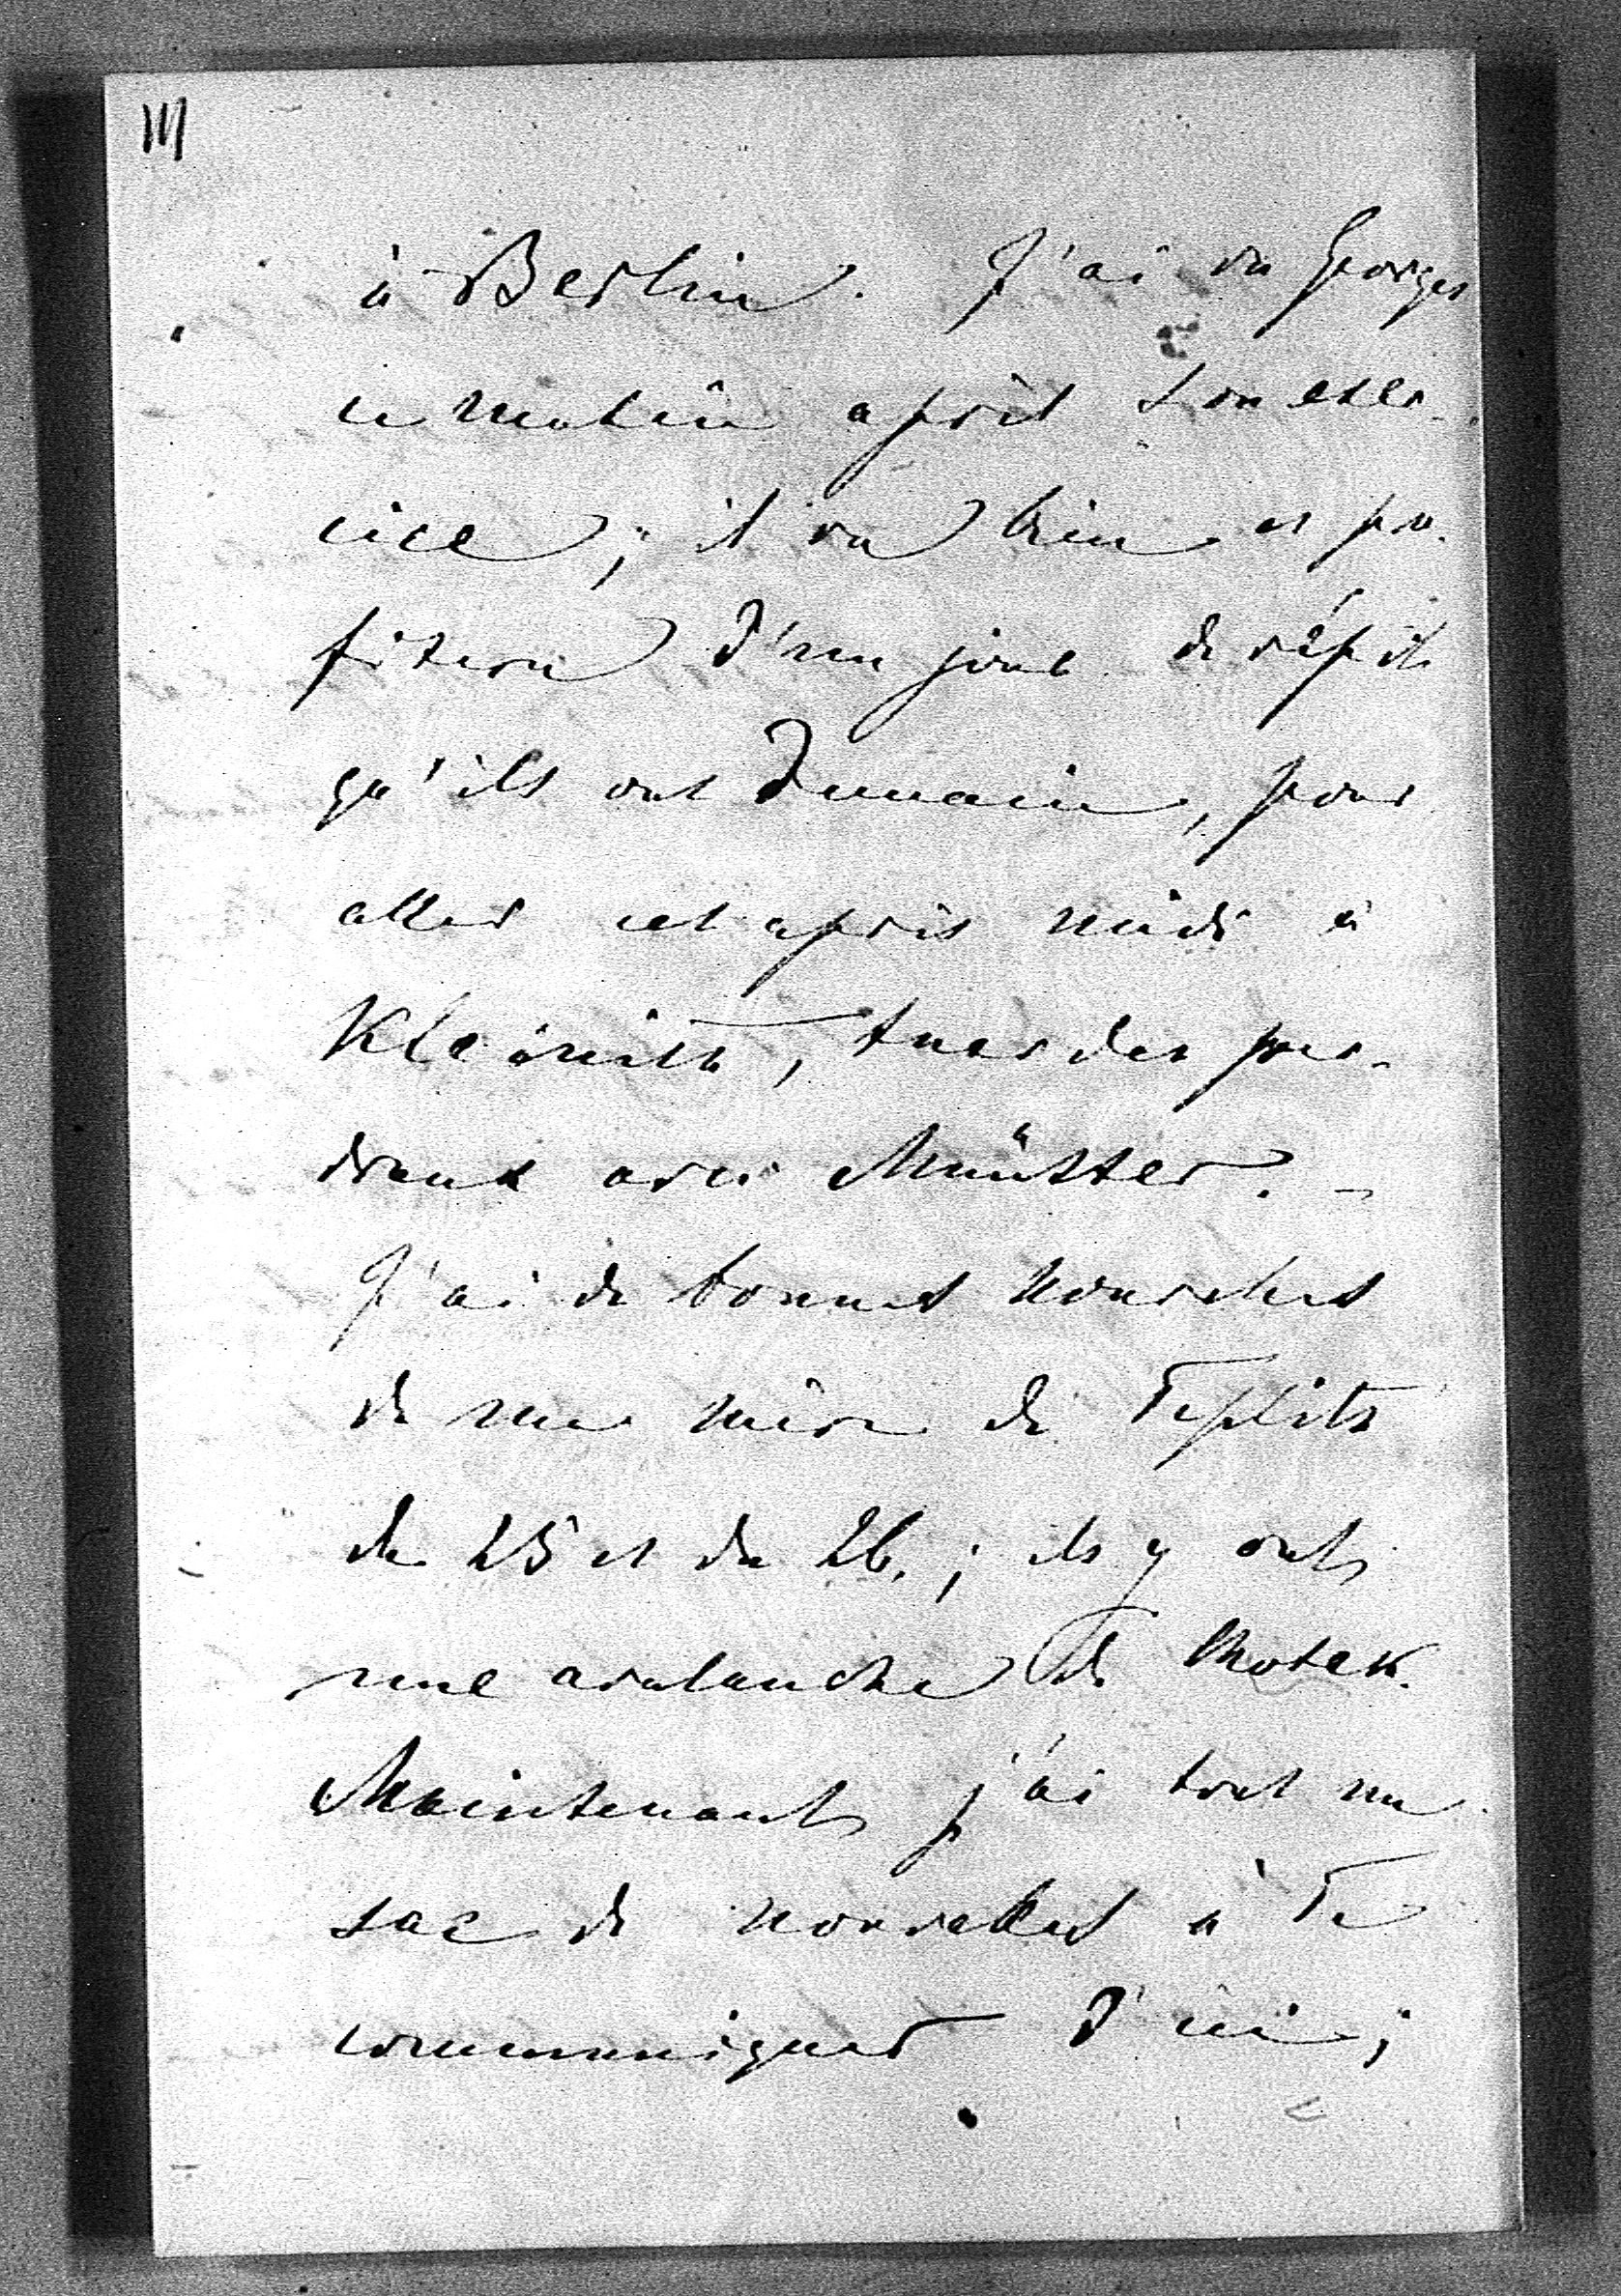 III
à Berlin. J'ai vu Georges
ce matin après son exer-
cice; il va bien et pro-
fitera d'un jour de répit
qu'ils ont demain, pour
aller cet après midi à
Kleinitz, tuer des per-
dreaux avec Münster. –
J'ai de bonnes nouvelles
de ma mère de Teplitz
du 25 et du 26.; ils y ont
une avalanche de Chotek.
Maintenant j'ai tout un
sac de nouvelles à Te
communiquer d'ici;